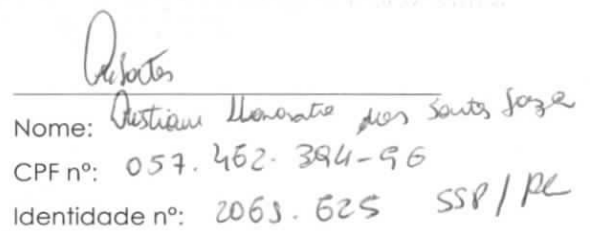 Nome: Cristiane Honorato dos Santos Souza
CPF nº: 057.462.394-96
Identidade nº: 2063.625 SSP/